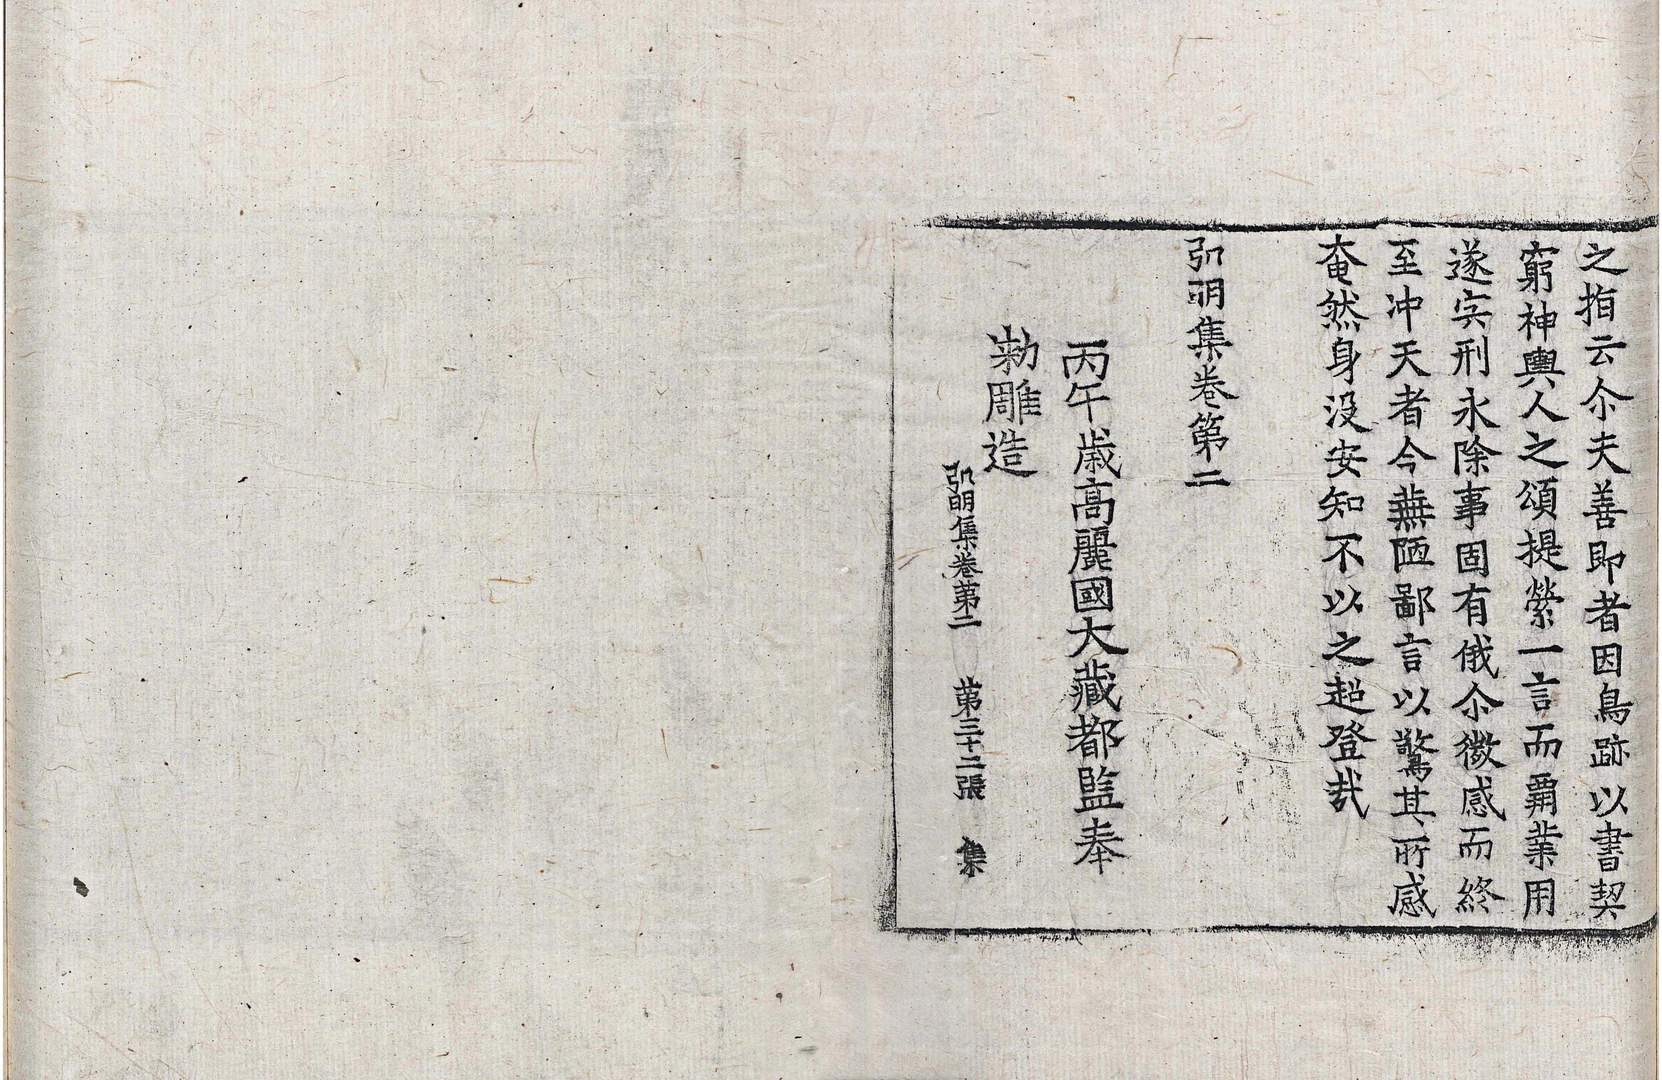 之指云尒夫善即者因鳥跡以書契
窮神輿人之頌提縈一言而覇業用
遂宍刑永除事固有俄尒微感而終
至冲天者今蕪陋鄙言以驚其所感
奄然身没安知不以之超登哉
弘明集卷第二
丙午歲高麗國大藏都監奉
勅雕造
弘明集卷第二 第三十二張 集